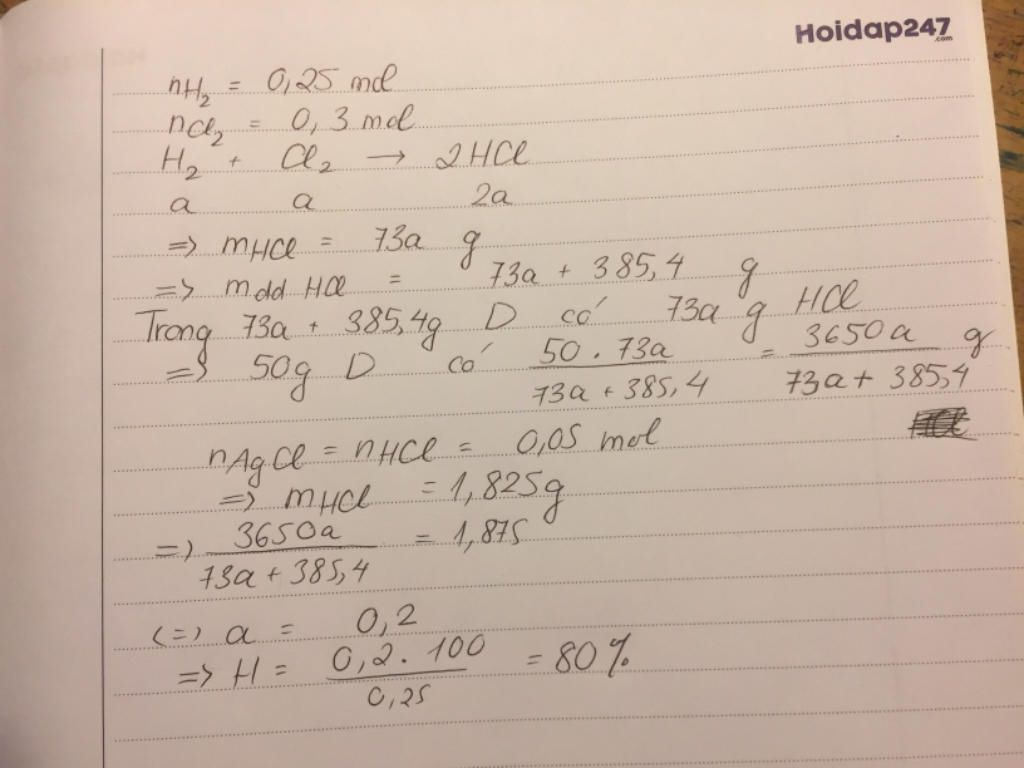 Hoidap247
.com
nH₂ = 0,25 mol
nCl₂ = 0,3 mol
H₂ + Cl₂ → 2HCl
a a 2a
=> mHCl = 73a g
=> mdd HCl = 73a + 385,4 g
Trong 73a + 385,4g D có 73a g HCl
=> 50g D có (50 . 73a)/(73a + 385,4) = 3650a/(73a + 385,4) g
nAgCl = nHCl = 0,05 mol
=> mHCl = 1,825g
=> 3650a/(73a + 385,4) = 1,875
<=> a = 0,2
=> H = (0,2 . 100)/0,25 = 80%